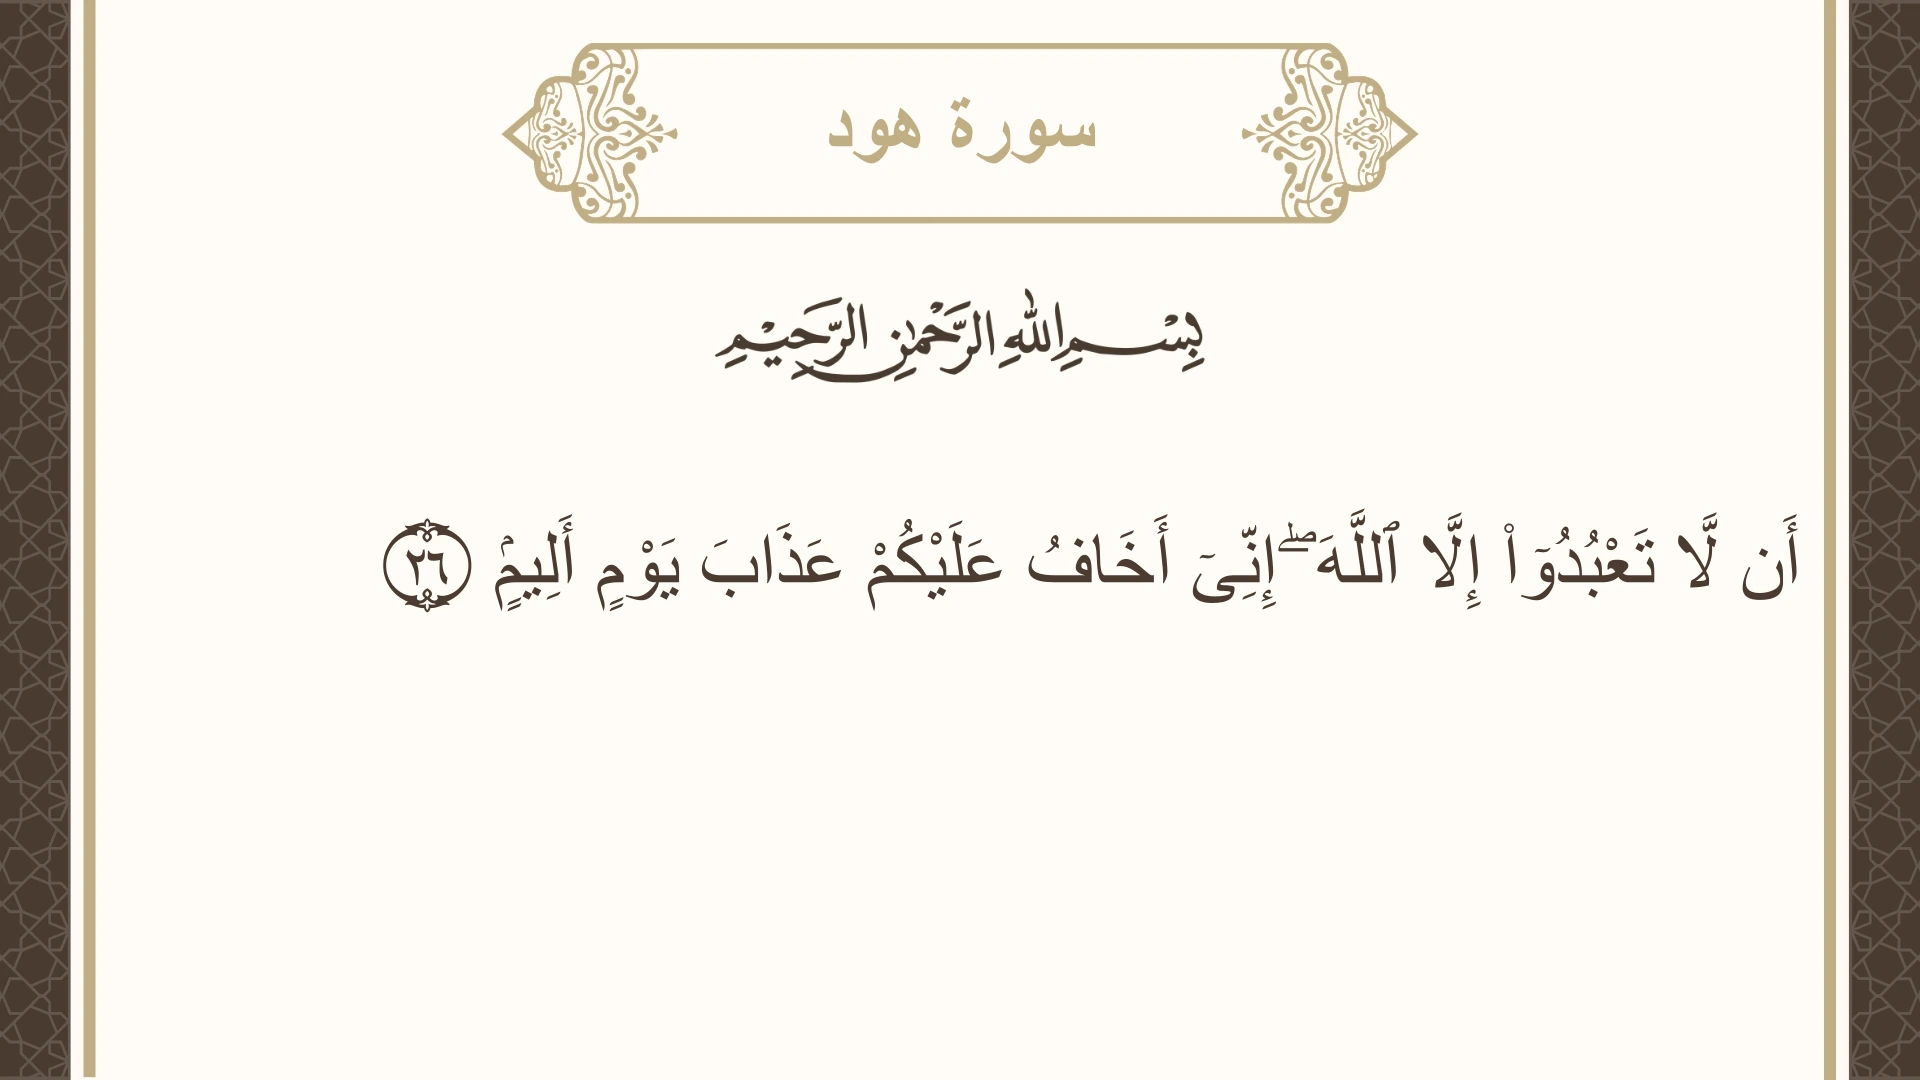 سورة هود
بِسْمِ اللهِ الرَّحْمٰنِ الرَّحِيْمِ
أَن لَّا تَعْبُدُوٓا۟ إِلَّا ٱللَّهَ ۖ إِنِّىٓ أَخَافُ عَلَيْكُمْ عَذَابَ يَوْمٍ أَلِيمٍۢ ٢٦